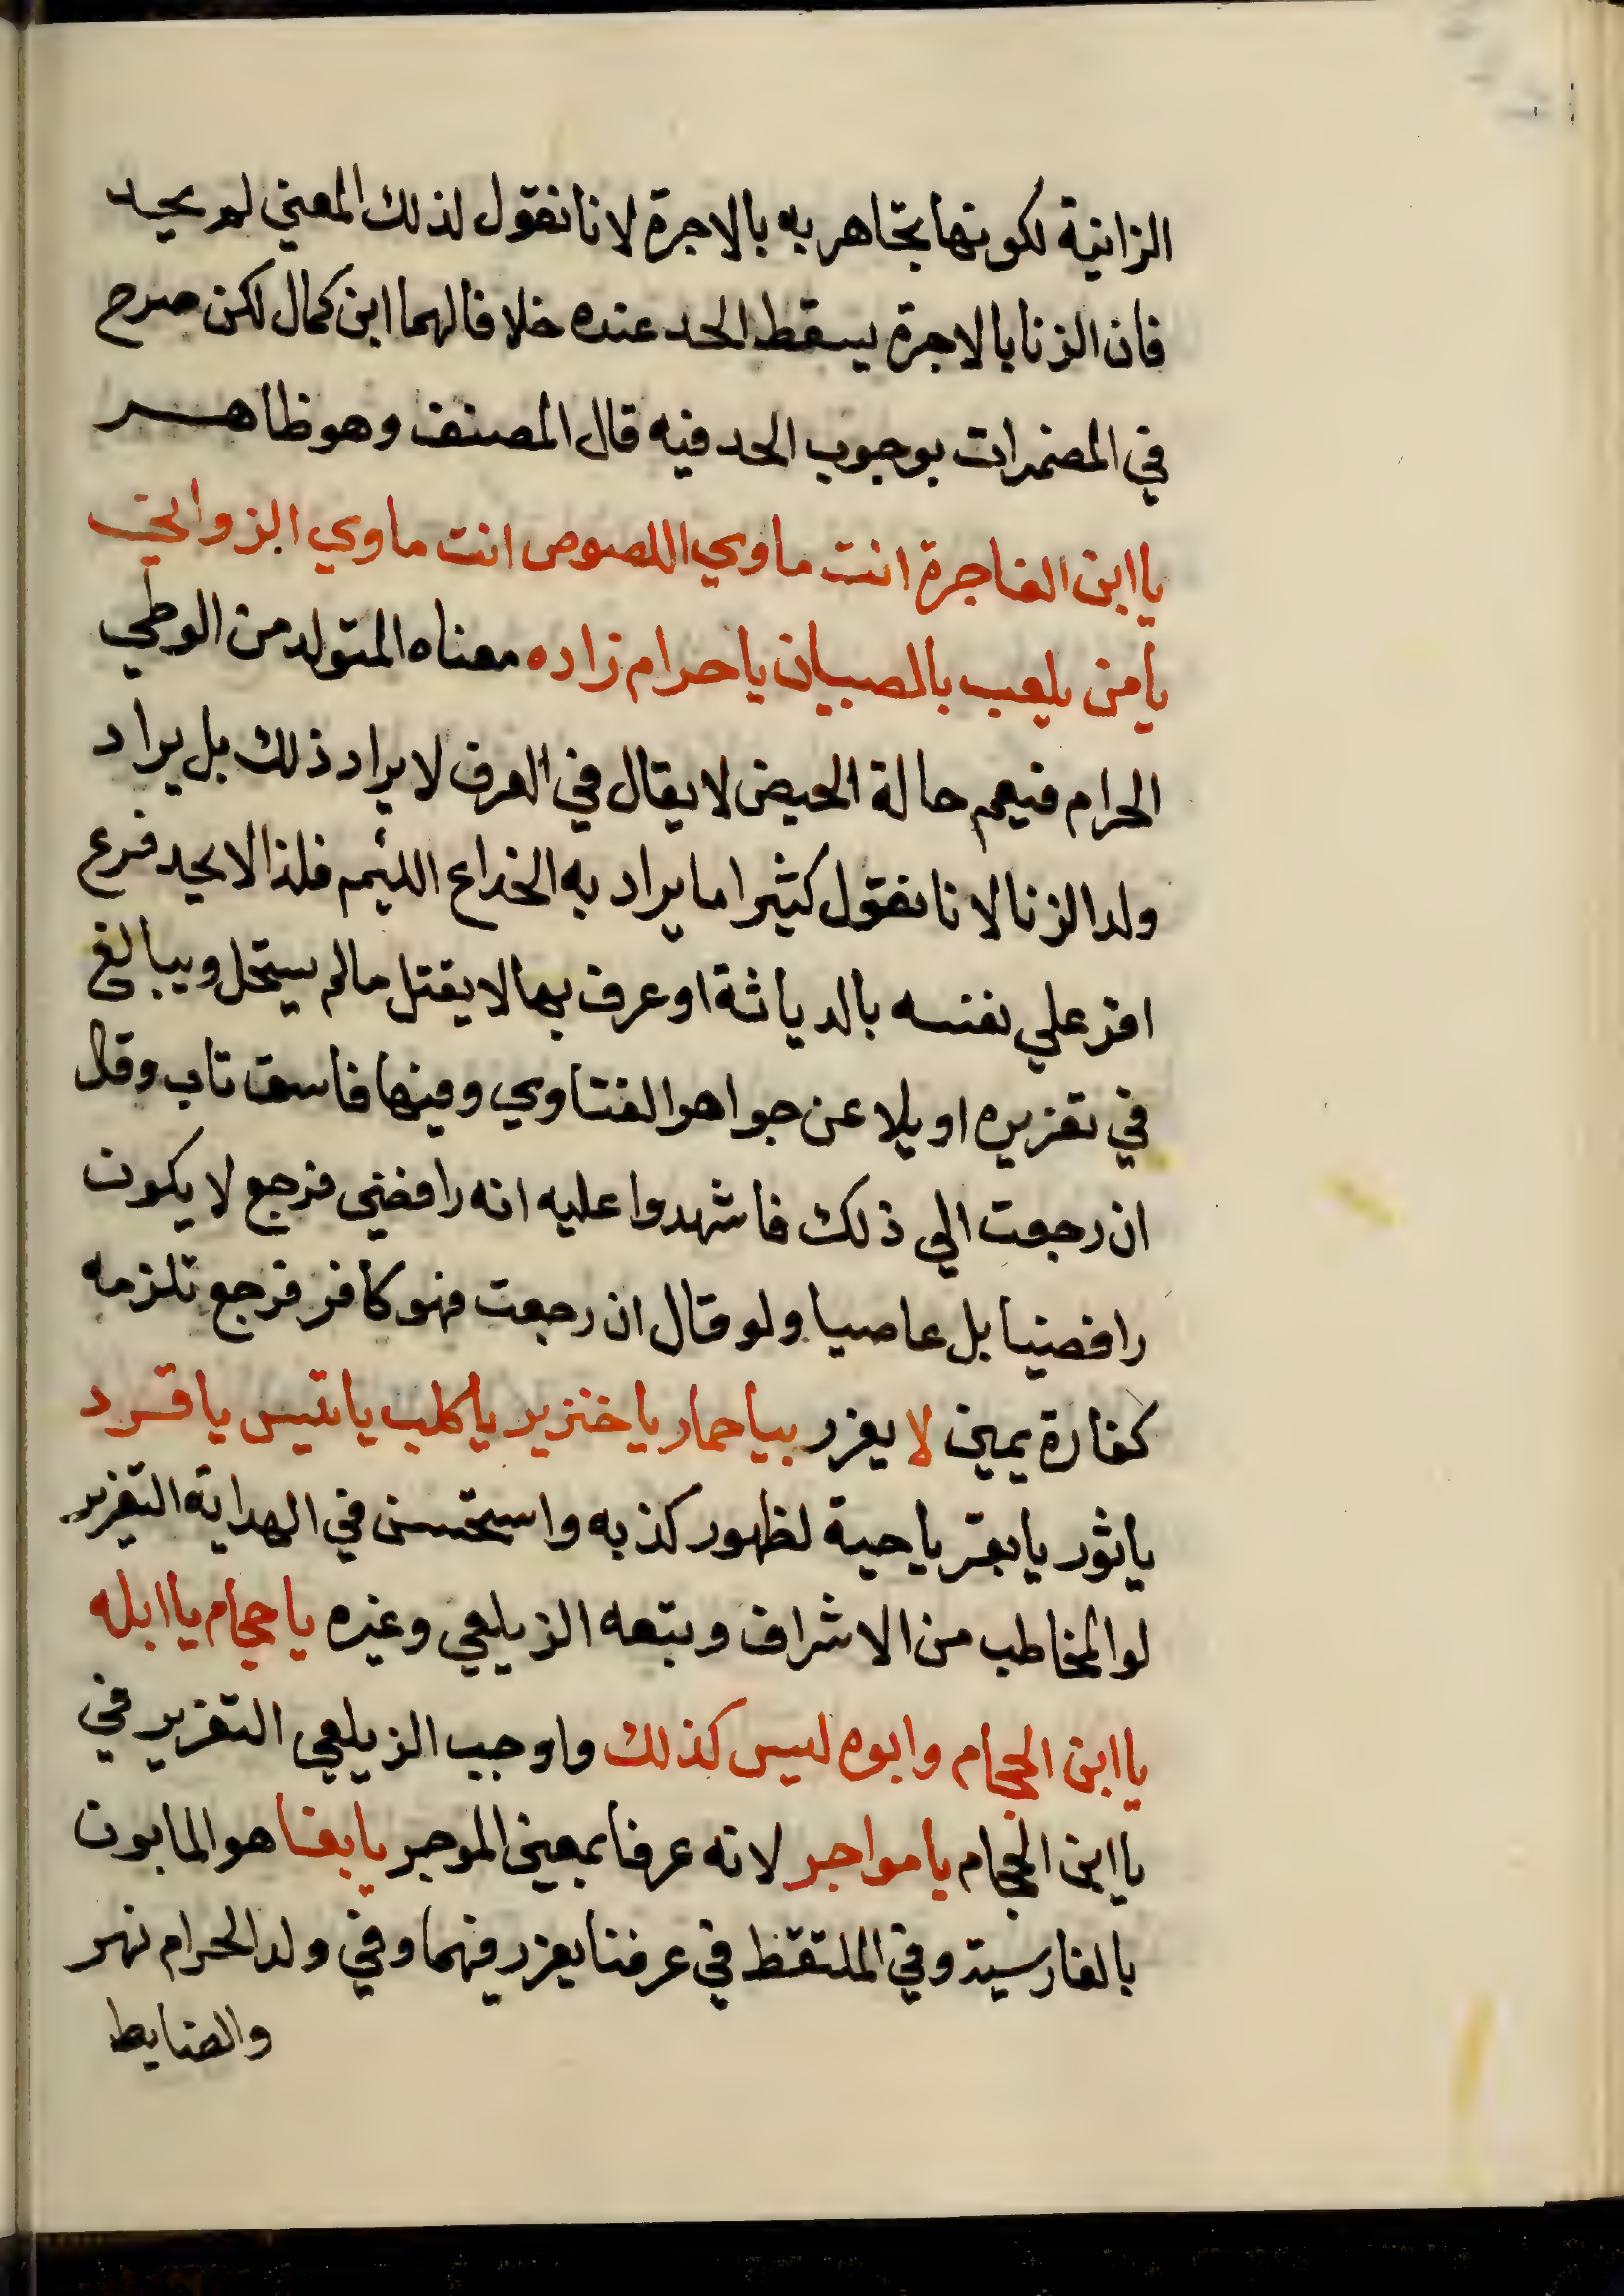 الزانية لكونها تجاهر به بالاجرة لانا نقول لذلك المعني لم يحد
فان الزنا بالاجرة يسقط الحد عنده خلافا لهما ابن كمال لكن صرح
في المضمرات بوجوب الحد فيه قال المصنف وهو ظاهر
يا ابن الفاجرة انت ماوي اللصوص انت ماوي الزواني
يا من يلعب بالصبيان يا حرام زاده معناه المتولد من الوطي
الحرام فيعم حالة الحيض لا يقال في العرف لا يراد ذلك بل يراد
ولد الزنا لانا نقول كثيرا ما يراد به الخداع اللئيم فلذا لا يحد فرع
اقر علي نفسه بالدياثة او عرف بها لا يقتل ما لم يستحل ويبالغ
في تعزيره او يلاعن جواهر الفتاوي وفيها فاسق تاب وقال
ان رجعت الي ذلك فاشهدوا عليه انه رافضي فرجع لا يكون
رافضيا بل عاصيا ولو قال ان رجعت فهو كافر فرجع تلزمه
كفارة يمين لا يعزر بيا حمار يا خنزير يا كلب يا تيس يا قرد
يا ثور يا بقر يا حية لظهور كذبه واستحسن في الهداية التعزير
لو المخاطب من الاشراف وتبعه الزيلعي وغيره يا حجام يا ابله
يا ابن الحجام وابوه ليس كذلك واوجب الزيلعي التعزير في
يا ابن الحجام يا مواجر لانه عرفا بمعني الموجر يا بغا هو المابون
بالفارسية وفي الملتقط في عرفنا يعزر فيهما وفي ولد الحرام نهر
والضابط